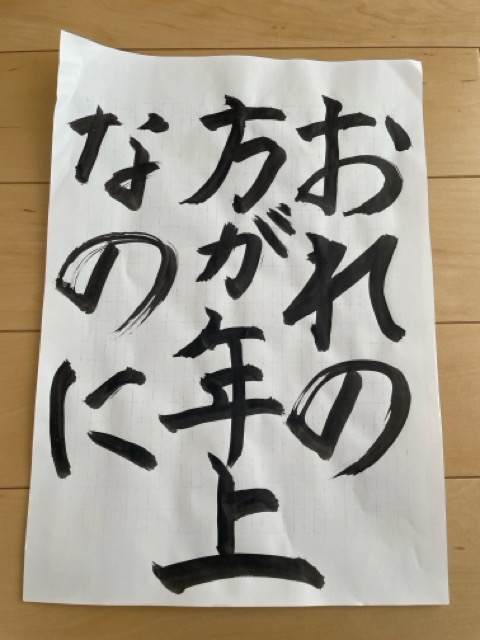 おれの
方が年上
なのに